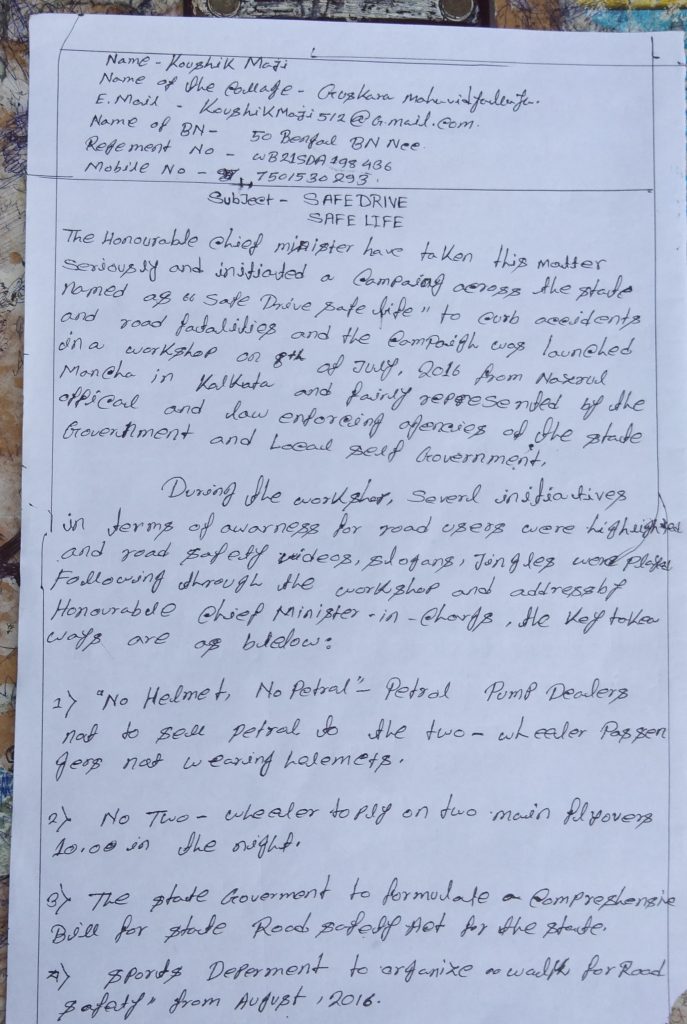 Name - Koushik Maji
Name of the Collage - Guskara mahavidyallaya.
E. Mail - KoushikMaji512@Gmail.com.
Name of BN- 50 Bengal BN Ncc.
Regement No - WB21SDA198436
Mobile No - 7501530293.
Subject - SAFE DRIVE
SAFE LIFE
The Honourable Chief minister have taken this matter
seriously and initiated a Campaing across the state
named as "Safe Drive safe life" to curb accidents
and road fatalities and the Campaigh was launched
in a workshop on 8th of July, 2016 from Nazrul
Mancha in Kalkata and fairly represented by the
offical and law enforcing agencies of the state
Government and Local self Government.
During the workshop, Severl initiatives
in terms of awarness for road users were highlighted
and road safety videos, slogans, Jingles were played
Following through the workshop and address by
Honourable Chief Minister-in-Charge, the Key taken
ways are as below:
1) "No Helmet, No Petral" - Petral Pump Dealers
not to sell petral to the two-wheeler Passen
gers not wearing halemets.
2) No Two-wheeler to ply on two main flyovers
10.00 in the night.
3) The state Goverment to formulate a Compreshensive
Bill for state Road safety Act for the state.
4) sports Deperment to organize a walk for Road
safety" from August, 2016.